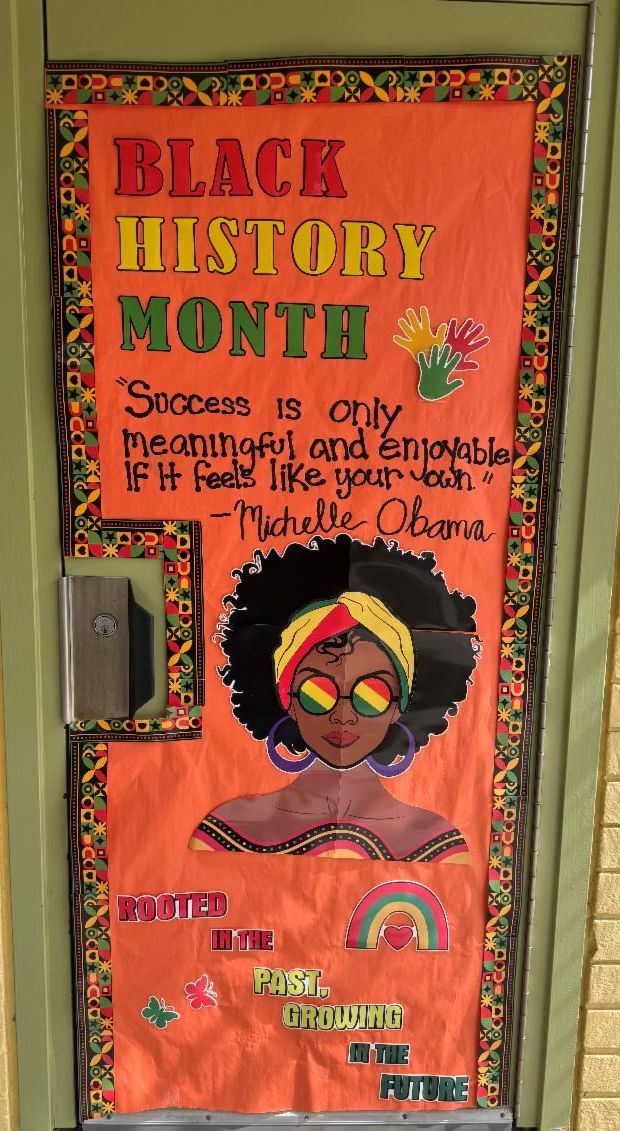 BLACK
HISTORY
MONTH
"Success is only
meaningful and enjoyable
If it feels like your own."
-Michelle Obama
ROOTED
IN THE
PAST,
GROWING
IN THE
FUTURE